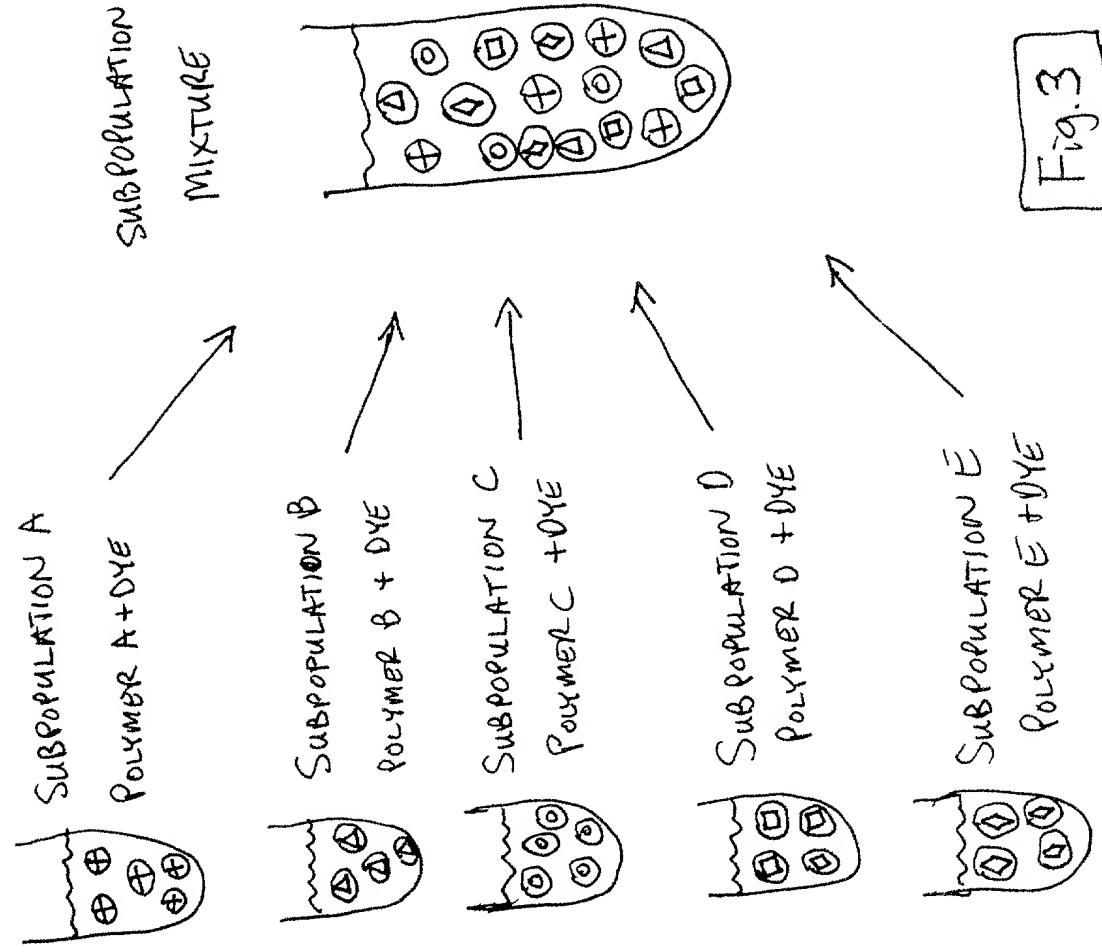 SUBPOPULATION A
POLYMER A + DYE
SUBPOPULATION B
POLYMER B + DYE
SUBPOPULATION C
POLYMER C + DYE
SUBPOPULATION D
POLYMER D + DYE
SUBPOPULATION E
POLYMER E + DYE
SUBPOPULATION
MIXTURE
Fig.3